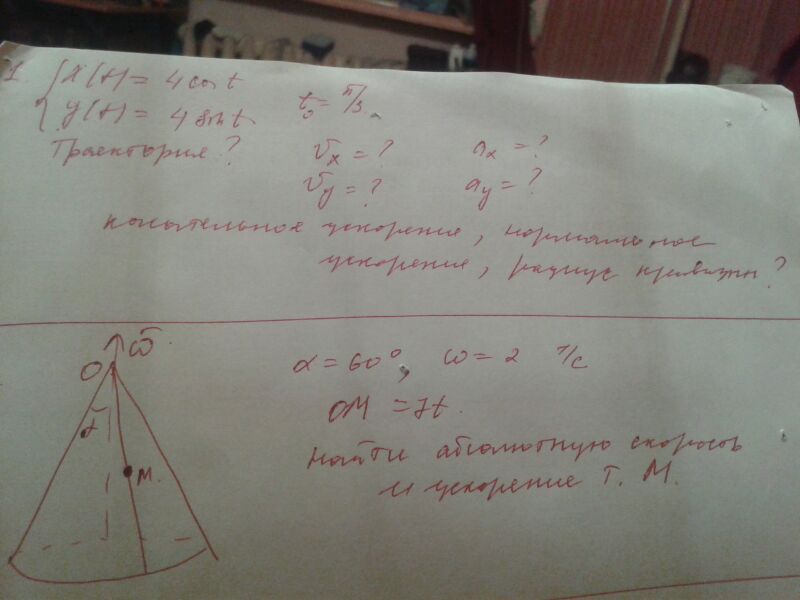 1. { x(t) = 4 cos t
y(t) = 4 sin t   t₀ = π/3
Траектория?   Vx = ?   ax = ?
Vy = ?   ay = ?
касательное ускорение, нормальное
ускорение, радиус кривизны?
ω̄
O
α
M
α = 60°, ω = 2 1/с
OM = 7t.
Найти абсолютную скорость
и ускорение т. М.